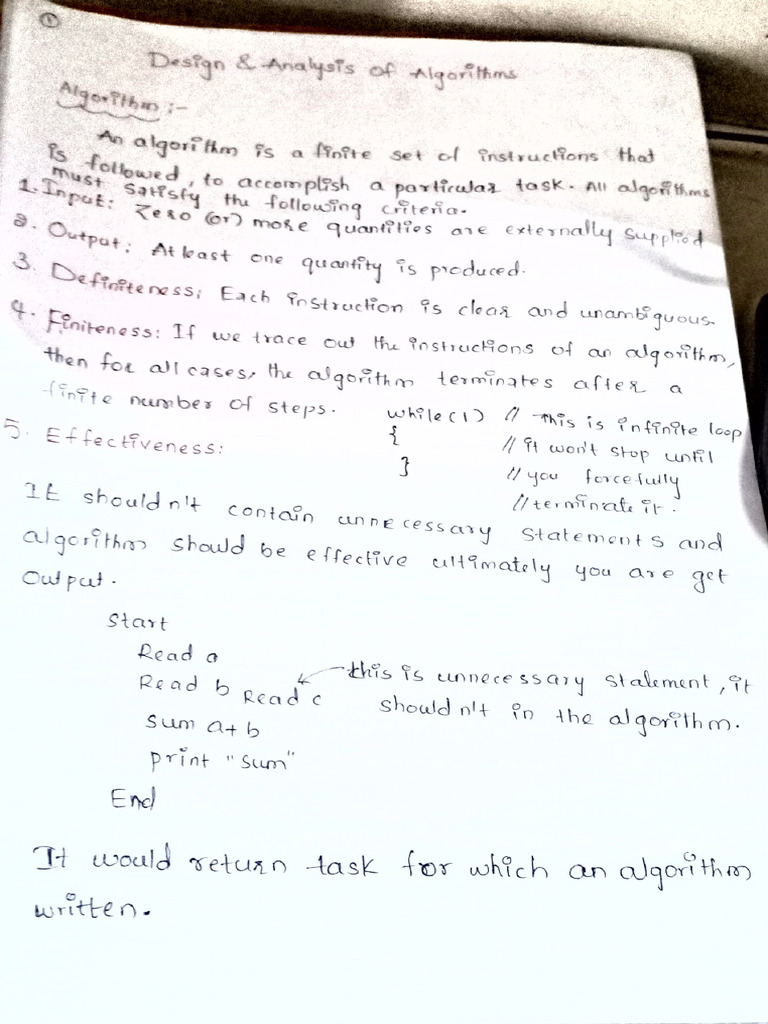 ①
Design & Analysis of Algorithms
Algorithm :-
An algorithm is a finite set of instructions that
is followed, to accomplish a particular task. All algorithms
must satisfy the following criteria.
1. Input: Zero (or) more quantities are externally supplied
2. Output: At least one quantity is produced.
3. Definiteness: Each instruction is clear and unambiguous.
4. Finiteness: If we trace out the instructions of an algorithm,
then for all cases, the algorithm terminates after a
finite number of steps.
while(1) // This is infinite loop
{ // it won't stop until
} // you forcefully
// terminate it.
5. Effectiveness:
It shouldn't contain unnecessary statements and
algorithm should be effective ultimately you are get
output.
Start
Read a
Read b Read c
this is unnecessary statement, it
shouldn't in the algorithm.
sum a+b
print "sum"
End
It would return task for which an algorithm
written.